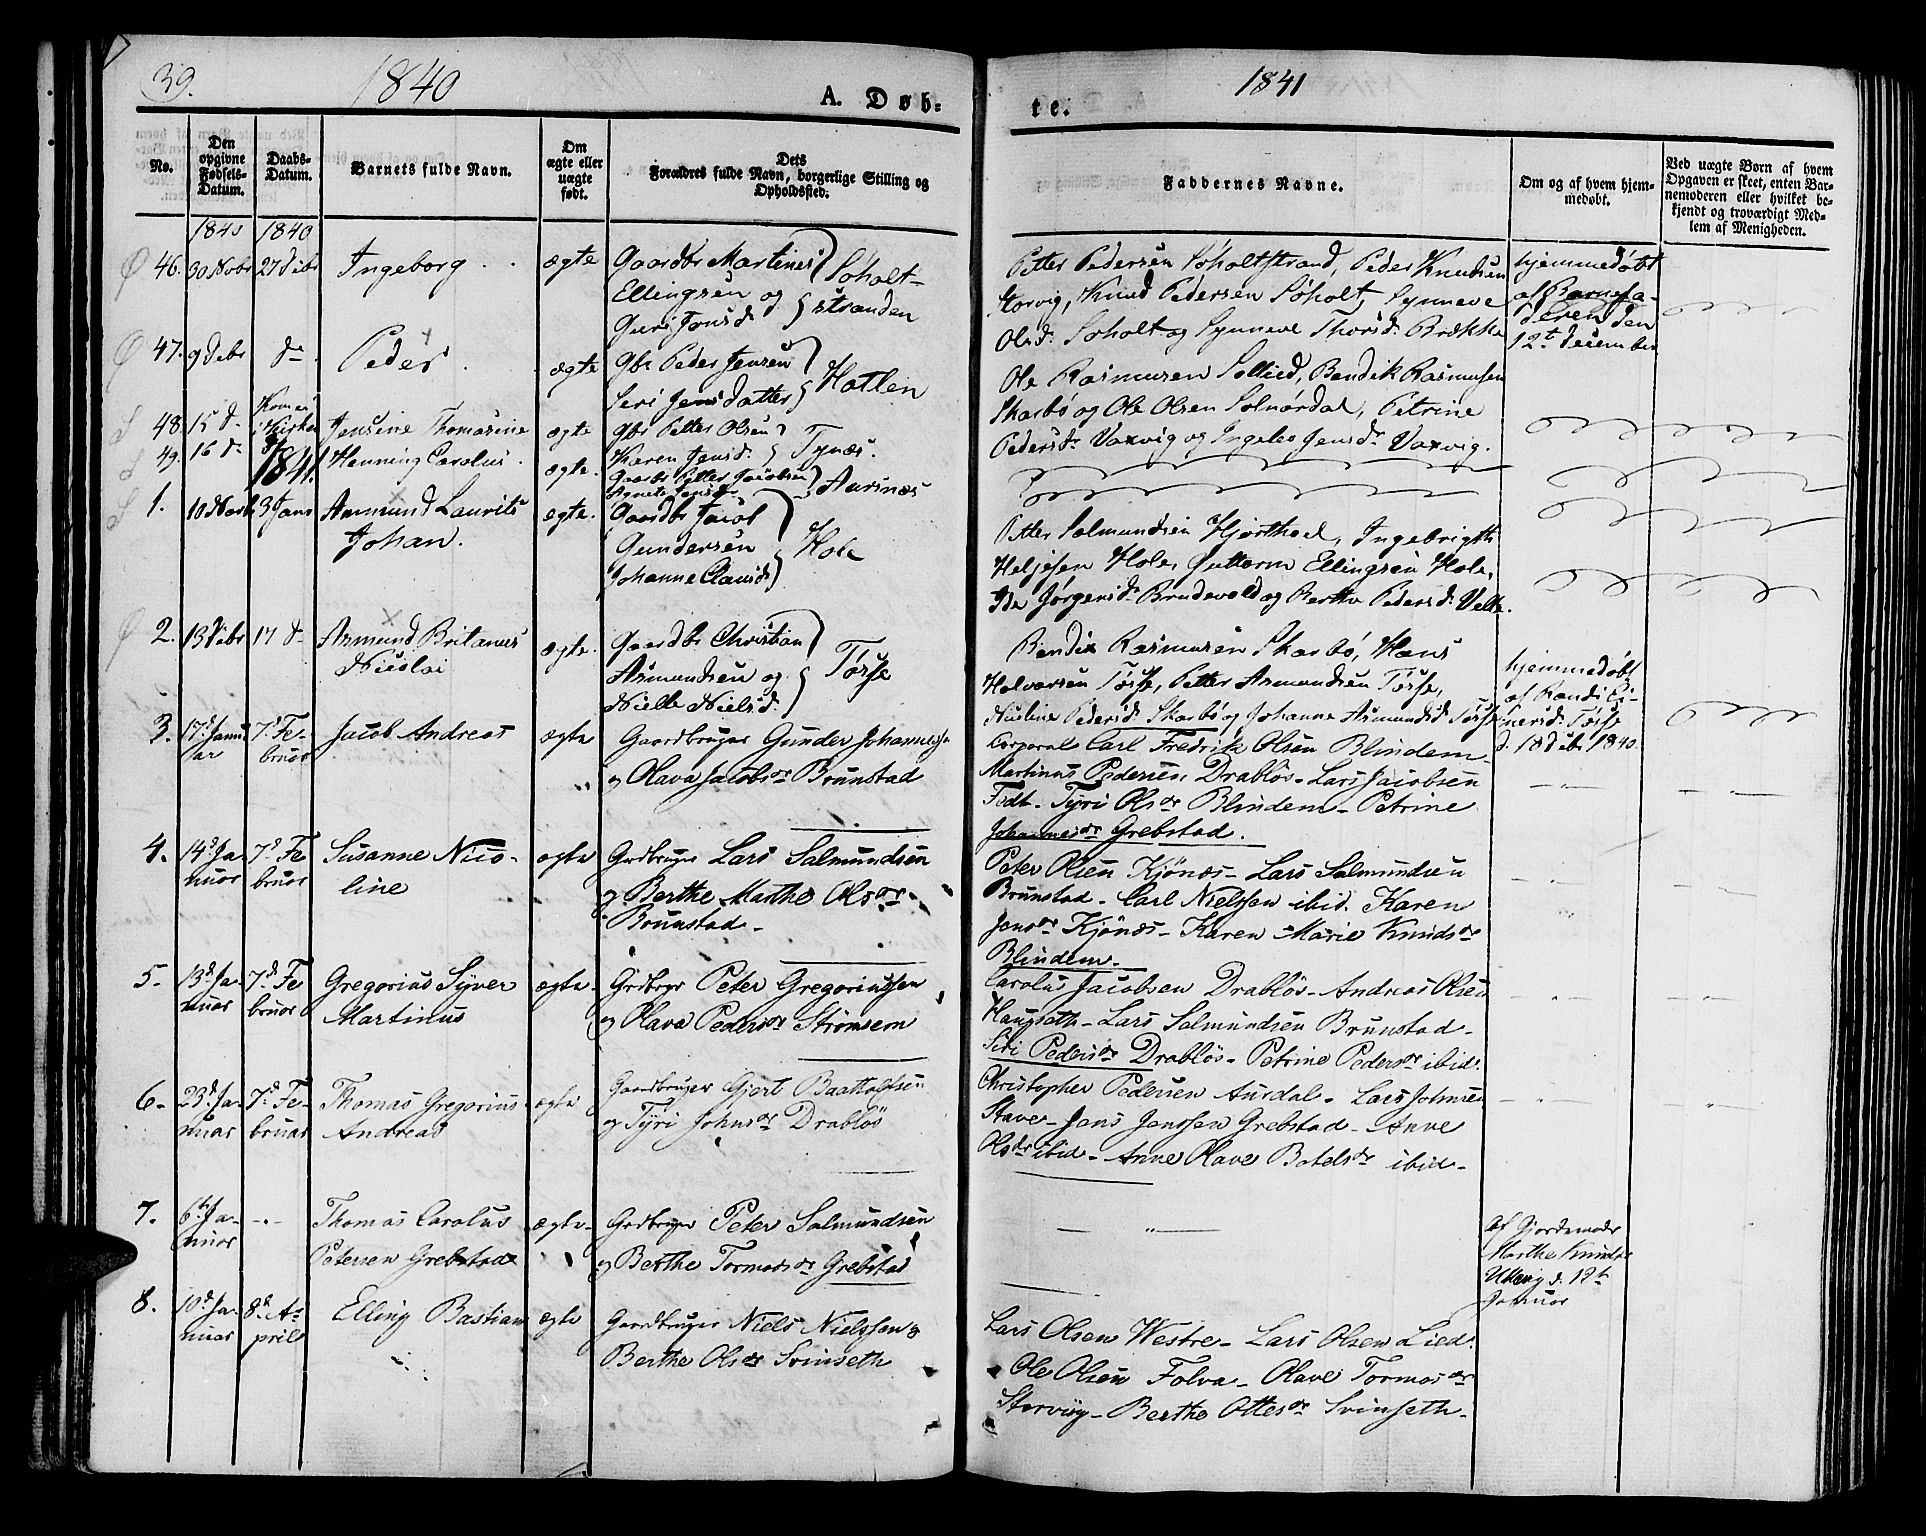 39.
1840
A. Døb-
te.
1841
No.
Den opgivne Fødsels-Datum.
Daabs-Datum.
Barnets fulde Navn.
Om ægte eller uægte født.
Dets Forældres fulde Navn, borgerlige Stilling og Opholdsfted.
Faddernes Navne.
Om og af hvem hjem-medøbt.
Ved uægte Børn af hvem Opgaven er skeet, enten Bar-nemoderen eller hvilket be-kjendt og troværdigt Med-lem af Menigheden.
1840 1840
46. 30 Novbr 27 Debr Ingeborg ægte Gaardbr Martines
Ellingsen og
Guri Jonsd.
Søholt-
stranden
Petter Pedersen Søholtstrand, Peder Knudsen
Storvig, Knud Pedersen Søholt, Synneve
Olsd. Søholt og Synneve Thorsd. Brække
hjemmedøbt
af Barnefa-
deren den
12t December
47. 9 Debr do Peder ægte Gbr Peder Jensen
Seri Jensdatter
Hatlen
Ole Rasmusen Sollied, Bendik Rasmusen
Skarbø og Ole Olsen Solnørdal, Petrine
Pedersdr Vaxvig og Ingeleo Jensdr Vaxvig.
48. 15 d. Jensine Thomasine ægte Gbr Petter Olsen
Karen Jensd.
Tynæs.
49. 16 d. Henning Carolus ægte. Gaardbr Petter Jacobsen
Aurinæs
1841.
1. 10 Novbr 3 Janr Asmund Laurits
Johan.
ægte. Gaardbr Jacob
Gundersen
Johanne Clausd.
Hole
Petter Salmundsen Hjorthoel, Ingebrigth
Heljesen Hole, Guttorm Ellingsen Hole,
Ide Jørgensd. Brudevold og Berthe Pedersd. Velle.
2. 13 Debr 17 d. Asmund Britanus
Nicolai
ægte. Gaardbr Christian
Asmundsen og
Nielle Nielsd.
Tøsse
Bendix Rasmusen Skarbø, Hans
Halvorsen Tøsse, Petter Asmundsen Tøsse,
Pedersd. Skarbø og Johanne Asmundsd. Tøsse
hjemmedøbt
af Randi Ei-
nersd. Tøsse
d. 18 debr 1840.
3. 17d Janu-
ar
7d Fe-
bruar
Jacob Andreas ægte Gaardbruger Gunder Johannesen
og Olava Jacobsdr Brunstad
Corporal Carl Fredrik Olsen Blindem-
Martinus Pedersen Drabløs- Lars Jacobsen
Fedt- Tyri Olsdr Blindem- Petrine
Johannesdr Grebstad.
4. 14d Ja-
nuar
7d Fe
bruar
Susanne Nico-
line
ægte Grdbruger Lars Salmundsen
og Berthe Marthe Olsdr
Brunstad-
Peter Olsen Kjönæs- Lars Salmundsen
Brunstad- Carl Nielssen ibid. Karen
Jensdr Kjönæs- Karen Marie Knudsdr
Blindem-
5. 13d Ja-
nuar
7d Fe
bruar
Gregorius Syver
Martinus
ægte- Grdbrgr Peter Gregoriussen
og Olava Pedersdr Strømsem
Carolus Jacobsen Drabløs- Andreas Olsen
Haugseth- Lars Salmundsen Brunstad-
Siri Pedersdr Drabløs- Petrine Pedersdr ibid.
6. 23d Ja-
nuar
7d Fe-
bruar
Thomas Gregorius
Andreas
ægte Gaardbruger Gjert Baatholfsen
og Tyri Johnsdr Drabløs
Christopher Pedersen Aurdal- Lars Johnsen
Stave- Jens Jenssen Grebstad- Anne
Olsdr ibid- Anne Olave Botelsdr ibid-
7. 6te Ja-
nuar
Thomas Carolus
Petersen Grebstad
ægte- Grdbruger Peter Salmundsen
og Berthe Tormodsdr Grebstad
Af Gjordemodr
Marthe Knudsdr
d. 12te
Januar
8. 10d Ja-
nuar
8d A-
pril
Elling Bastian ægte Gaardbruger Niels Nielssen og
Berthe Olsdr Svinseth
Lars Olsen Westre- Lars Olsen Lied.
Ole Olsen Folva- Olave Tormodsdr
Storvig- Berthe Ottesdr Svinseth-